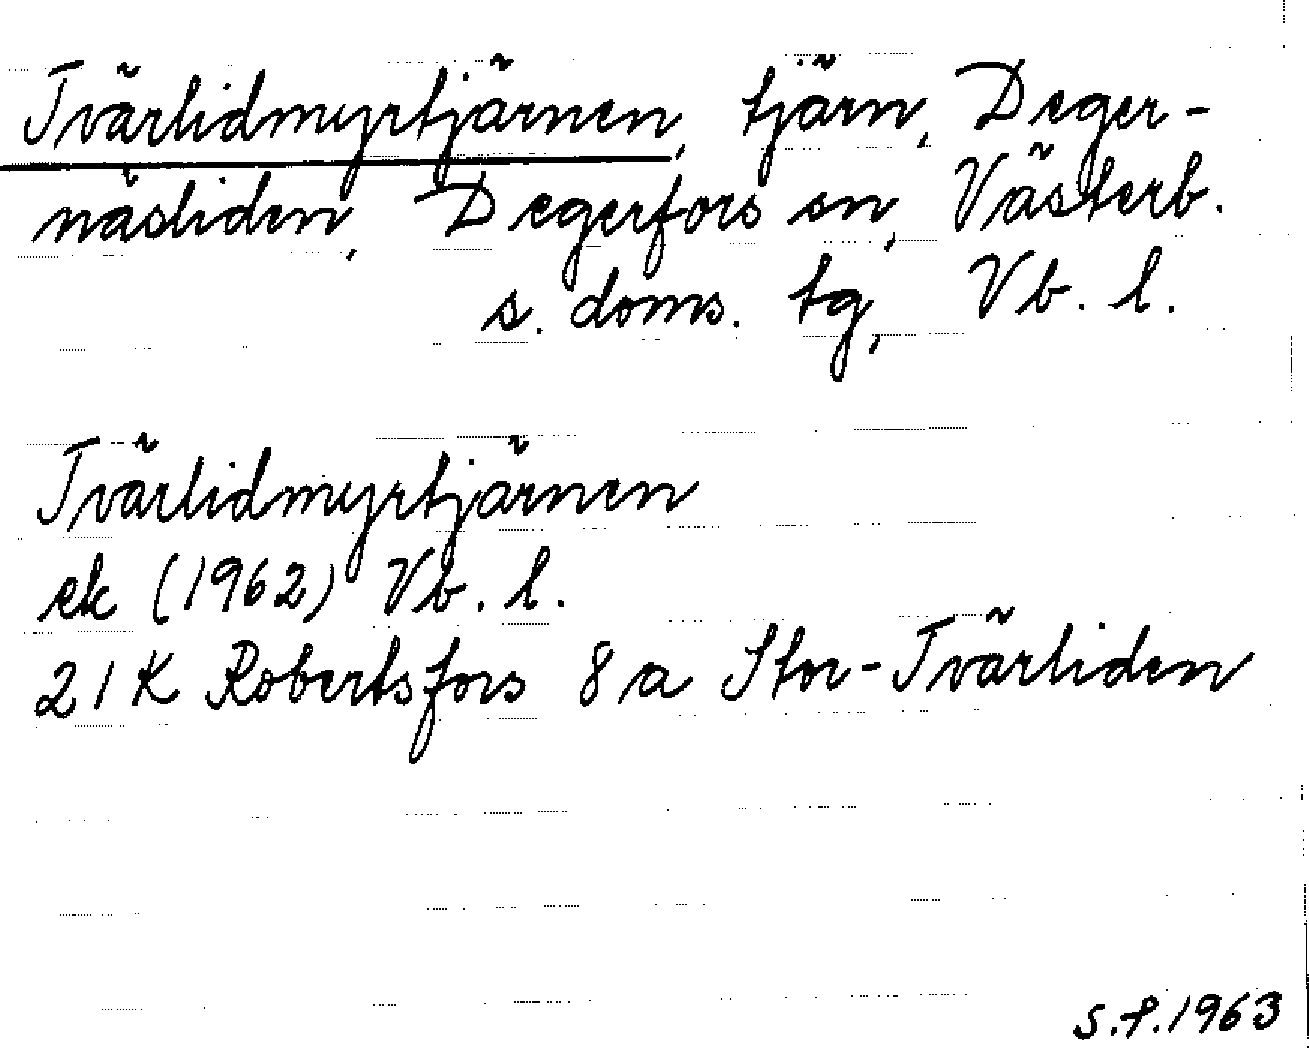 Tvärlidmyrtjärnen, tjärn, Deger-
näsliden, Degerfors sn, Västerb.
s. doms. tg, Vb. l.
Tvärlidmyrtjärnen
ek (1962) Vb. l.
21K Robertsfors 8a Stor-Tvärliden
S.P.1963